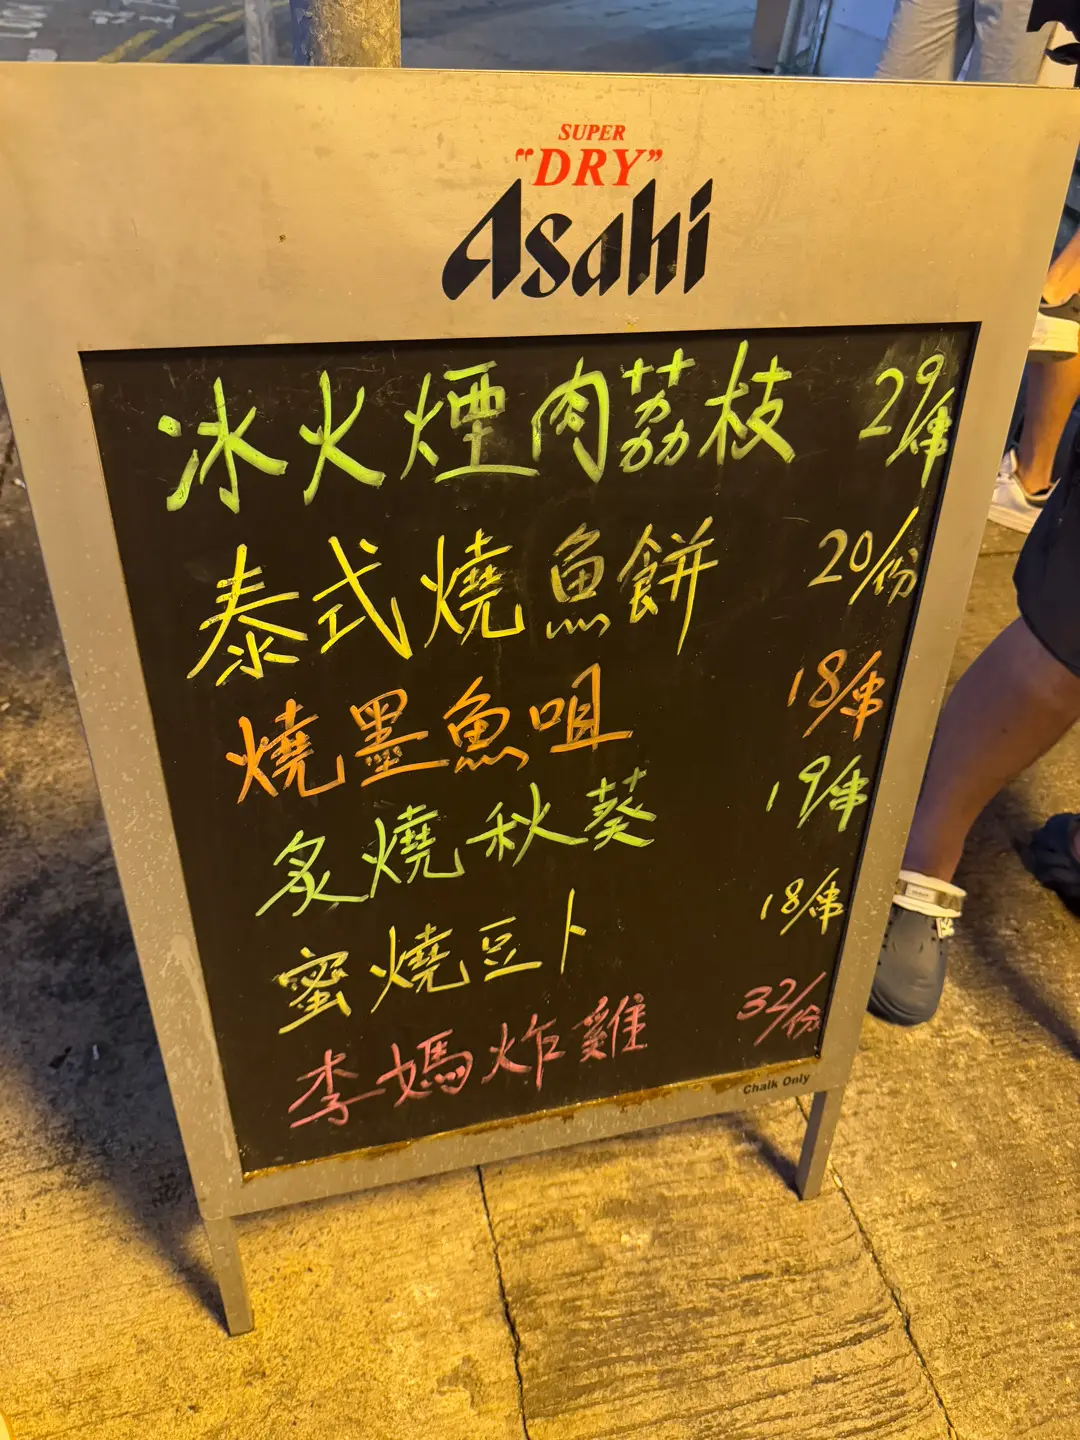 SUPER
"DRY"
Asahi
冰火煙肉荔枝 29/串
泰式燒魚餅 20/份
燒墨魚咀 18/串
炙燒秋葵 19/串
蜜燒豆卜 18/串
李媽炸雞 32/份
Chalk Only